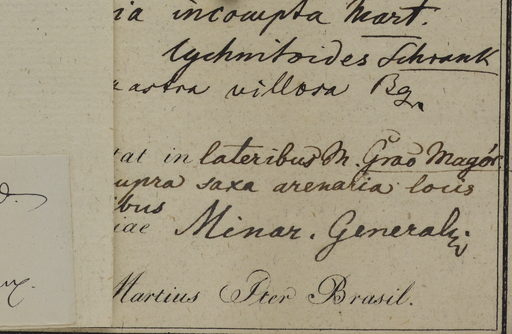 ia incompta Mart.
lychnitoides Schrank
astra villosa Bg.
tat in lateribus M. Grão Magór.
upra saxa arenaria locis
ibus
iae Minar. Generaly.
Martius Iter Brasil.